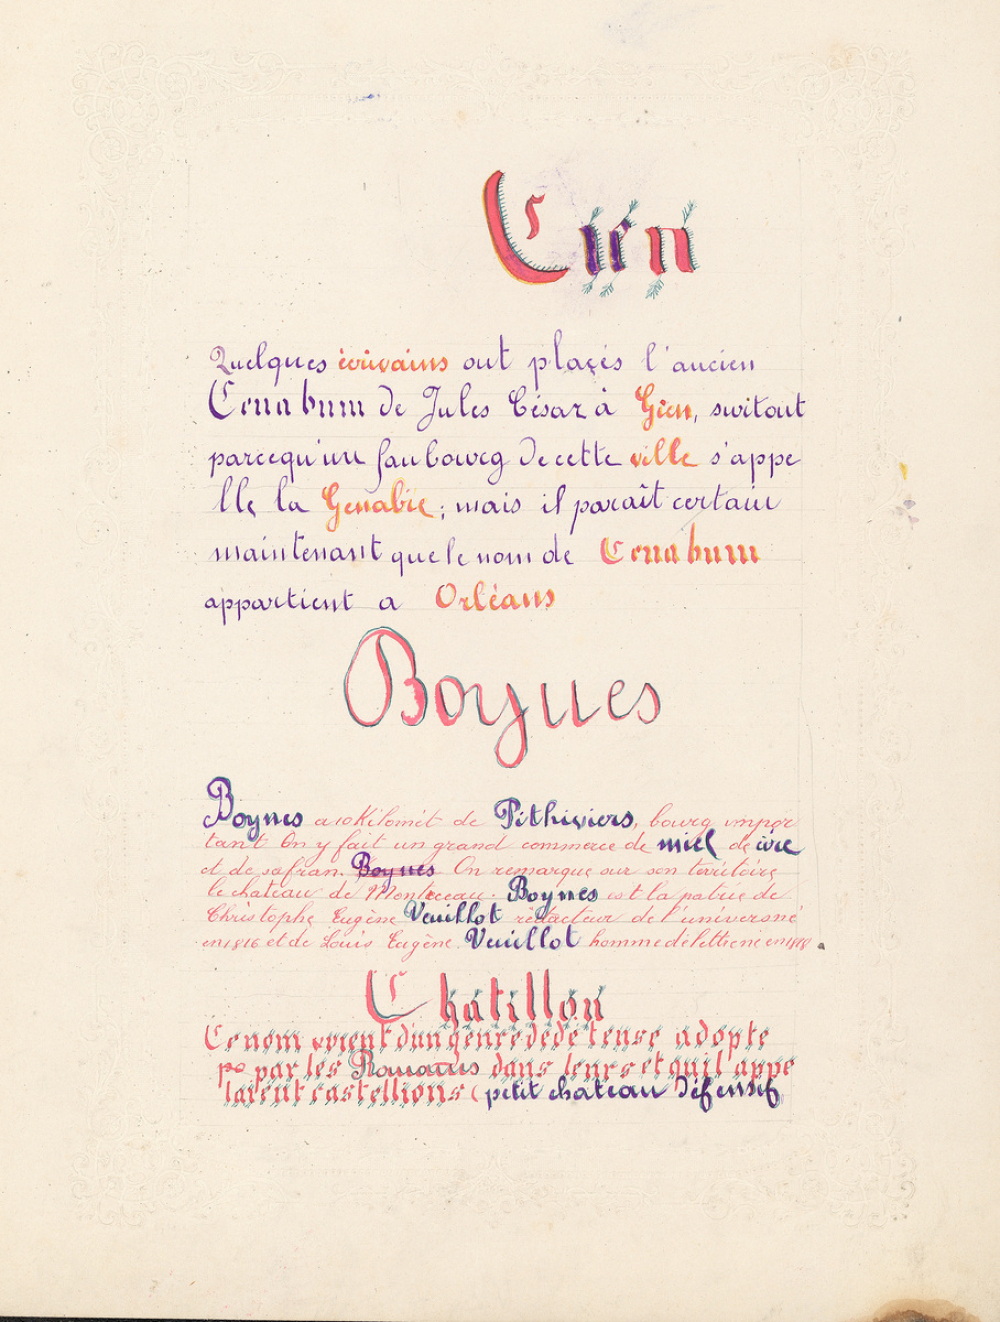 Gien
Quelques écrivains ont placés l'ancien
Cenabum de Jules César à Gien, surtout
parcequ'un faubourg de cette ville s'appe
lle la Genabie; mais il paraît certain
maintenant que le nom de Cenabum
appartient a Orléans
Boynes
Boynes a 10 Kilomèt de Pithiviers, bourg impor
tant On y fait un grand commerce de miel de cire
et de safran. Boynes On remarque sur son territoire
le chateau de Montceau. Boynes est la patrie de
Christophe Eugène Veuillot rédacteur de l'univers né
en 1816 et de Louis Eugène. Veuillot homme de lettre né en 1818.
Chatillon
Ce nom vient d'un genre de défense adopte
par les Romains dans leurs et quil appe
laient castellions (petit chateau défensif